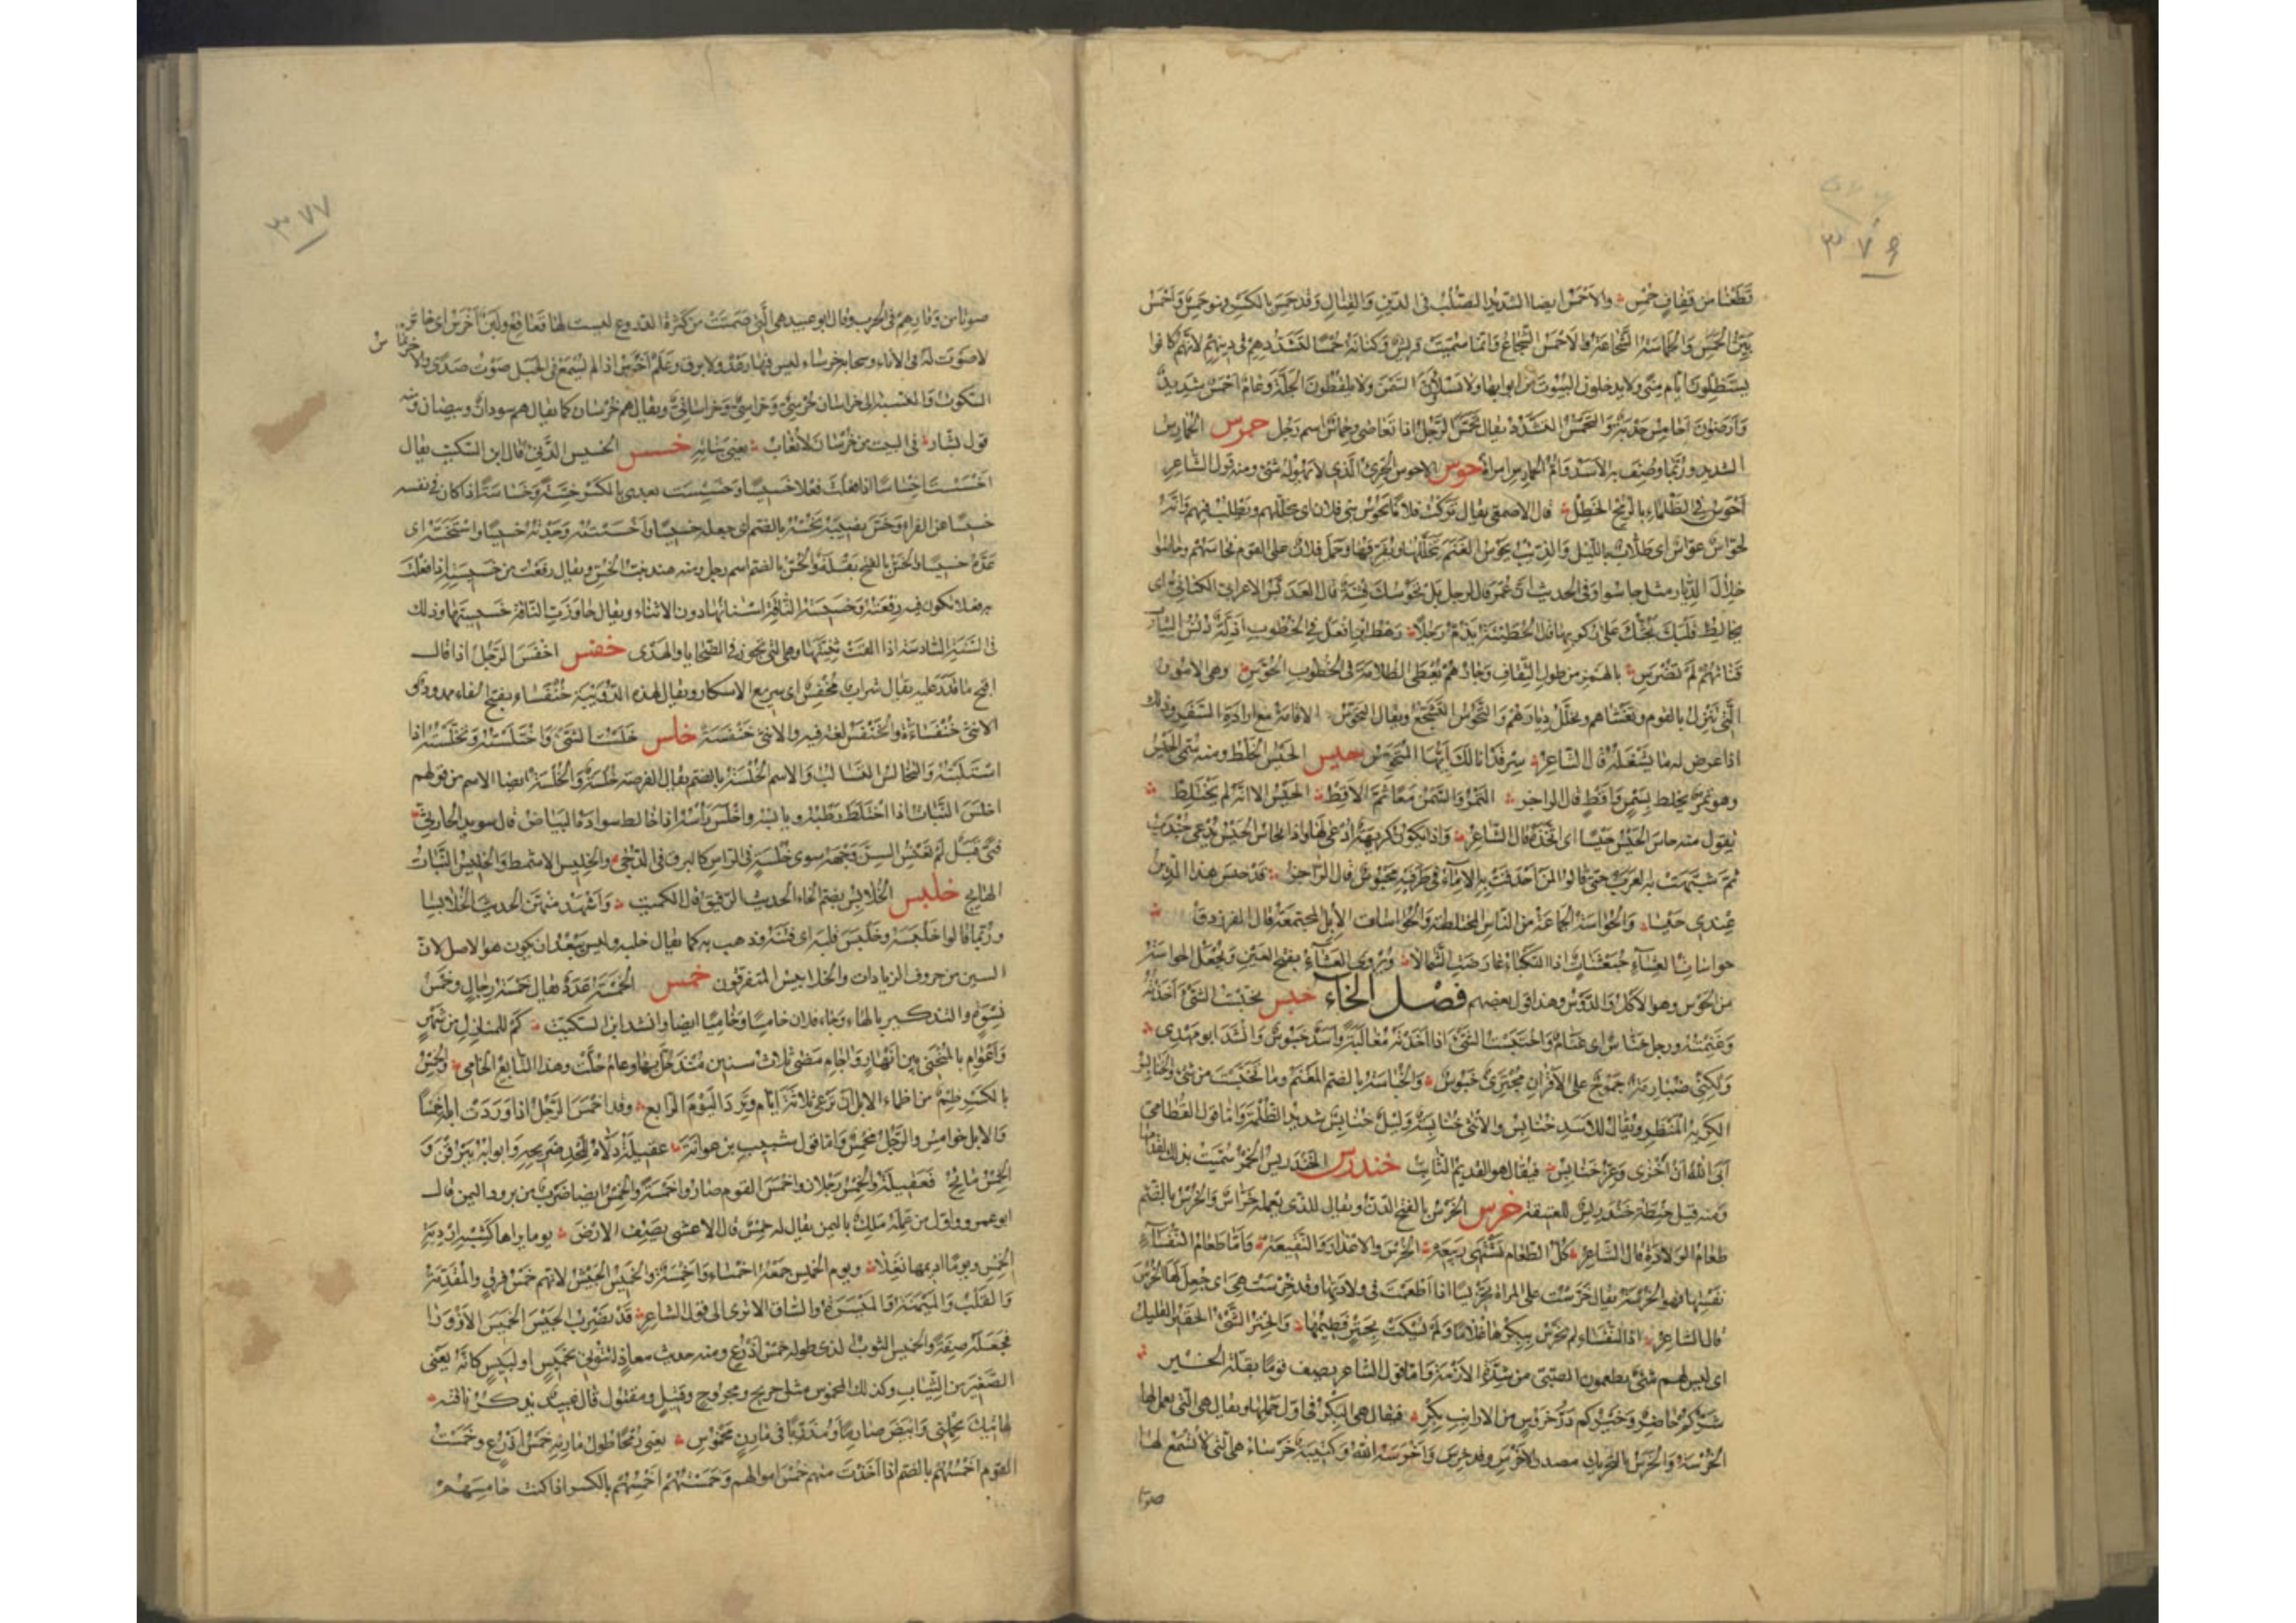 ٣٧٦
قطعنا من قفاف حمس والاحمس ايضا الشديد الصلب فى الدين والقتال وقد حمس بالكسر فهو حمس واحمس
بين الحمس والحماسة الشجاعة والاحمس الشجاع وانما سميت قريش وكنانة حمسا لتشددهم فى دينهم لانهم كانوا
يستظلون ايام منى ولا يدخلون البيوت من ابوابها ولا يسلؤن السمن ولا يلقطون الجلة وعام احمس شديد
وارضون احامس جدبة والتحمس التشدد يقال تحمس الرجل اذا تعاصى وحماس اسم رجل حمرس الحمارس
الشديد وربما وصف به الاسد وام الحمارس امرأة حوس الاحوس الجرئ الذى لا يهوله شئ ومنه قول الشاعر
احوس فى الظلماء بالرمح الخطل قال الاصمعى يقال تركت فلانا يحوس بنى فلان اى يتخللهم ويطلب فيهم وانه
لحواس عواس اى طلاب بالليل والذئب يحوس الغنم يتخللها ويفرقها وحمل فلان على القوم فحاسهم وحاسوا
خلال الديار مثل جاسوا وفى الحديث ان عمر قال لرجل بل تحوسك فتنة قال العدبس الاعرابى الكنانى اى
يخالط قلبك تحثك على ركوبها قال الحطيئة يذم رجلا رهط ابن افعل فى الخطوب اذلة دنس الثياب
قناتهم لم تضرس بالهمز من طول الثقاف وجارهم يعطى الظلامة فى الخطوب الحوس وهى الامور
التى تنزل بالقوم وتغشاهم وتخلل ديارهم والتحوس التشجع ويقال التحوس الاقامة مع ارادة السفر وذلك
اذا عرض له ما يشغله قال الشاعر سر قد انى لك ايها المتحوس حيس الحيس الخلط ومنه سمى الحيس
وهو تمر يخلط بسمن واقط قال الراجز التمر والسمن معا ثم الاقط الحيس الا انه لم يختلط
يقول منه حاس الحيس حيسا اى اتخذه قال الشاعر واذا تكون كريهة ادعى لها واذا يحاس الحيس يدعى جندب
ثم شبهت به العرب حتى قالوا لمن احدقت به الاماء فى طرفيه محيوس قال الراجز قد حيس هذا الدين
عندى حيسا والحواسة الجماعة من الناس المختلطة والحواسات الابل المجتمعة قال الفرزدق
حواسات العشاء خبعثنات اذا النكباء عارضت الشمالا ويروى العشاء بفتح العين ويجعل الحواسة
من الحوس وهو الاكل والدوس وهذا قول بعضهم فصل الخاء خبس تخبست الشئ اخذته
وغنمته ورجل خباس اى غنام واختبست الشئ اذا اخذته مغالبة واسد خبوس وانشد ابو مهدى
ولكنى ضبارمة جموح على الاقران مجترئ خبوس والخباسة بالضم المغنم وما تخبست من شئ والخنابس
الكريه المنظر ويقال للاسد خنابس والانثى خنابسة وليل خنابس شديد الظلمة واما قول القطامى
ابى الله ان اخزى وعز خنابس فيقال هو القديم الثابت خندرس الخندريس الخمر سميت بذلك لقدمها
ومنه قيل حنطة خندريس للعتيقة خرس الخرس بالفتح الدن ويقال للذى يعمله خراس والخرس بالضم
طعام الولادة قال الشاعر كل الطعام تشتهى ربيعه الخرس والاعذار والنقيعه واما طعام النفساء
نفسها فهو الخرسة يقال خرست على المراة تخريسا اذا اطعمت فى ولادتها وقد خرست هى اى جعل لها الخرس
قال الشاعر اذا النفساء لم تخرس ببكرها غلاما ولم يسكت بحتر فطيمها والحتر الشئ الحقير القليل
اى ليس لهم شئ يطعمون الصبى من شدة الازمة واما قول الشاعر يصف قوما بقلة الخير
شركم حاضر وخيركم در خروس من الارانب بكر فيقال هى البكر فى اول حملها ويقال هى التى يعمل لها
الخرسة والخرس بالتحريك مصدر الاخرس وقد خرس واخرسه الله وكتيبة خرساء هى التى لا تسمع لها
صوتا
٣٧٧
صوتا من وقارهم فى الحرب وقال ابو عبيد هى التى صمتت من كثرة الدروع ليست لها قعاقع ولبن اخرس اى خاثر
لا صوت له فى الاناء وسحابة خرساء ليس فيها رعد ولا برق وعلم اخرس اذا لم يسمع فى الجبل صوت صدى
السكوت والنسبة الى خراسان خرسى وخراسى وخراسانى ويقال هم خرسان كما يقال هم سودان وبيضان ومنه
قول بشار فى البيت من خرسان لا تعاب يعنى بناته خسس الخسيس الدنئ قال ابن السكيت يقال
اخسست اخساسا اذا فعلت فعلا خسيسا وخسست بعدى بالكسر خسة وخساسة اذا كان فى نفسه
خسيسا عن الفراء وخس نصيبه يخسه بالضم اى جعله خسيسا واخسسته وجدته خسيسا واستخسه اى
عده خسيسا والخس بالفتح بقلة والخس بالضم اسم رجل ومنه هند بنت الخس ويقال رفعت من خسيسته اذا فعلت
به فعلا تكون فيه رفعته وخسيسة الناقة اسنانها دون الاثناء ويقال جاوزت الناقة خسيستها وذلك
فى السنة السادسة اذا القت ثنيتها وهى التى تجوز فى الضحايا والهدى خفس اخفس الرجل اذا قال
اقبح ما قدر عليه يقال شراب مخفس اى سريع الاسكار ويقال لهذه الدويبة خنفساء بفتح الفاء ممدود
الانثى خنفساءة والخنفس لغة فيه والانثى خنفسة خلس خلست الشئ واختلسته وتخلسته اذا
استلبته والتخالس التسالب والاسم الخلسة بالضم يقال الفرصة خلسة والخلسة ايضا الاسم من قولهم
اخلس النبات اذا اختلط رطبه ويابسه واخلس راسه اذا خالط سواده البياض قال سويد الحارثى
فتى قبل لم تعنس السن وجهه سوى خلسة فى الراس كالبرق فى الدجى والخليس الاشمط والخليس النبات
الهايج خلبس الخلابس بضم الخاء الحديث الرقيق قال الكميت واشهد منهن الحديث الخلابسا
وربما قالوا خلبسه وخلبس قلبه اى فتنه وذهب به كما يقال خلبه وليس يبعد ان يكون هو الاصل لان
السين من حروف الزيادات والخلابيس المتفرقون خمس الخمسة عدد يقال خمسة رجال وخمس
نسوة والتذكير بالهاء وجاء فلان خامسا وخاميا ايضا وانشد ابن السكيت كم للمنازل من شهر
واعوام بالمنحنى بين انهار واجام مضى ثلاث سنين منذ حل بها وعام حلت وهذا التابع الخامى والخمس
بالكسر ظمء من اظماء الابل ان ترعى ثلاثة ايام وترد اليوم الرابع وقد اخمس الرجل اذا وردت ابله خمسا
والابل خوامس والرجل مخمس واما قول شبيب بن عوانة عقيلة دلاه للحد ضريحه واثوابه يبرقن
والخمس مائح فعقيلة والخمس رجلان واخمس القوم صاروا خمسة والخمس ايضا ضرب من برود اليمن قال
ابو عمرو واول من عمله ملك باليمن يقال له خمس قال الاعشى يصف الارض يوما تراها كشبه اردية
الخمس ويوما اديمها نغلا ويوم الخميس جمعه اخمساء واخمسة والخميس الجيش لانهم خمس فرق والمقدمة
والقلب والميمنة والميسرة والساق الا ترى الى قول الشاعر قد نضرب الجيش الخميس الازورا
فجعله صفة والخميس الثوب الذى طوله خمس اذرع ومنه حديث معاذ ائتونى بخميس او لبيس كانه يعنى
الصغير من الثياب وكذلك المخموس مثل جريح ومجروح وقتيل ومقتول قال عبيد يذكر ناقته
هاتيك تحملنى وابيض صارما ومذربا فى مارن مخموس يعنى رمحا طول مارنه خمس اذرع وخمست
القوم اخمسهم بالضم اذا اخذت منهم خمس اموالهم وخمستهم اخمسهم بالكسر اذا كنت خامسهم